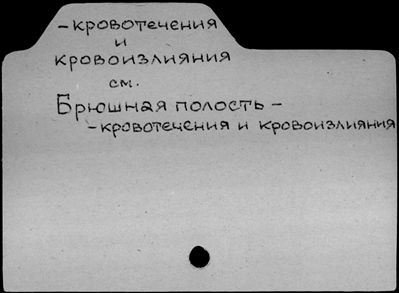 -кровотечения
и
кровоизлияния
см.
Брюшная полость -
-кровотечения и кровоизлияния